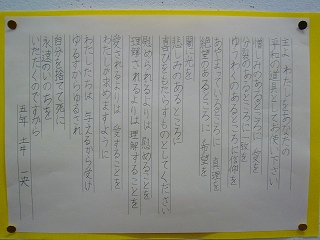 主よ わたしをあなたの
平和の道具としてお使い下さい
憎しみのあるところに 愛を
分裂のあるところに一致を
ゆうわくのあるところに信仰を
あやまっているところに 真理を
絶望のあるところに 希望を
闇に光を
悲しみのあるところに
喜びをもたらすものとしてください
慰められるよりは 慰めることを
理解されるよりは 理解することを
愛されるよりは 愛することを
わたしがきのぞみますように
わたしたちは 与えるから受け
ゆるすからゆるされ
自分を捨てて死に
永遠のいのちを
いただくのですから
五年 土井